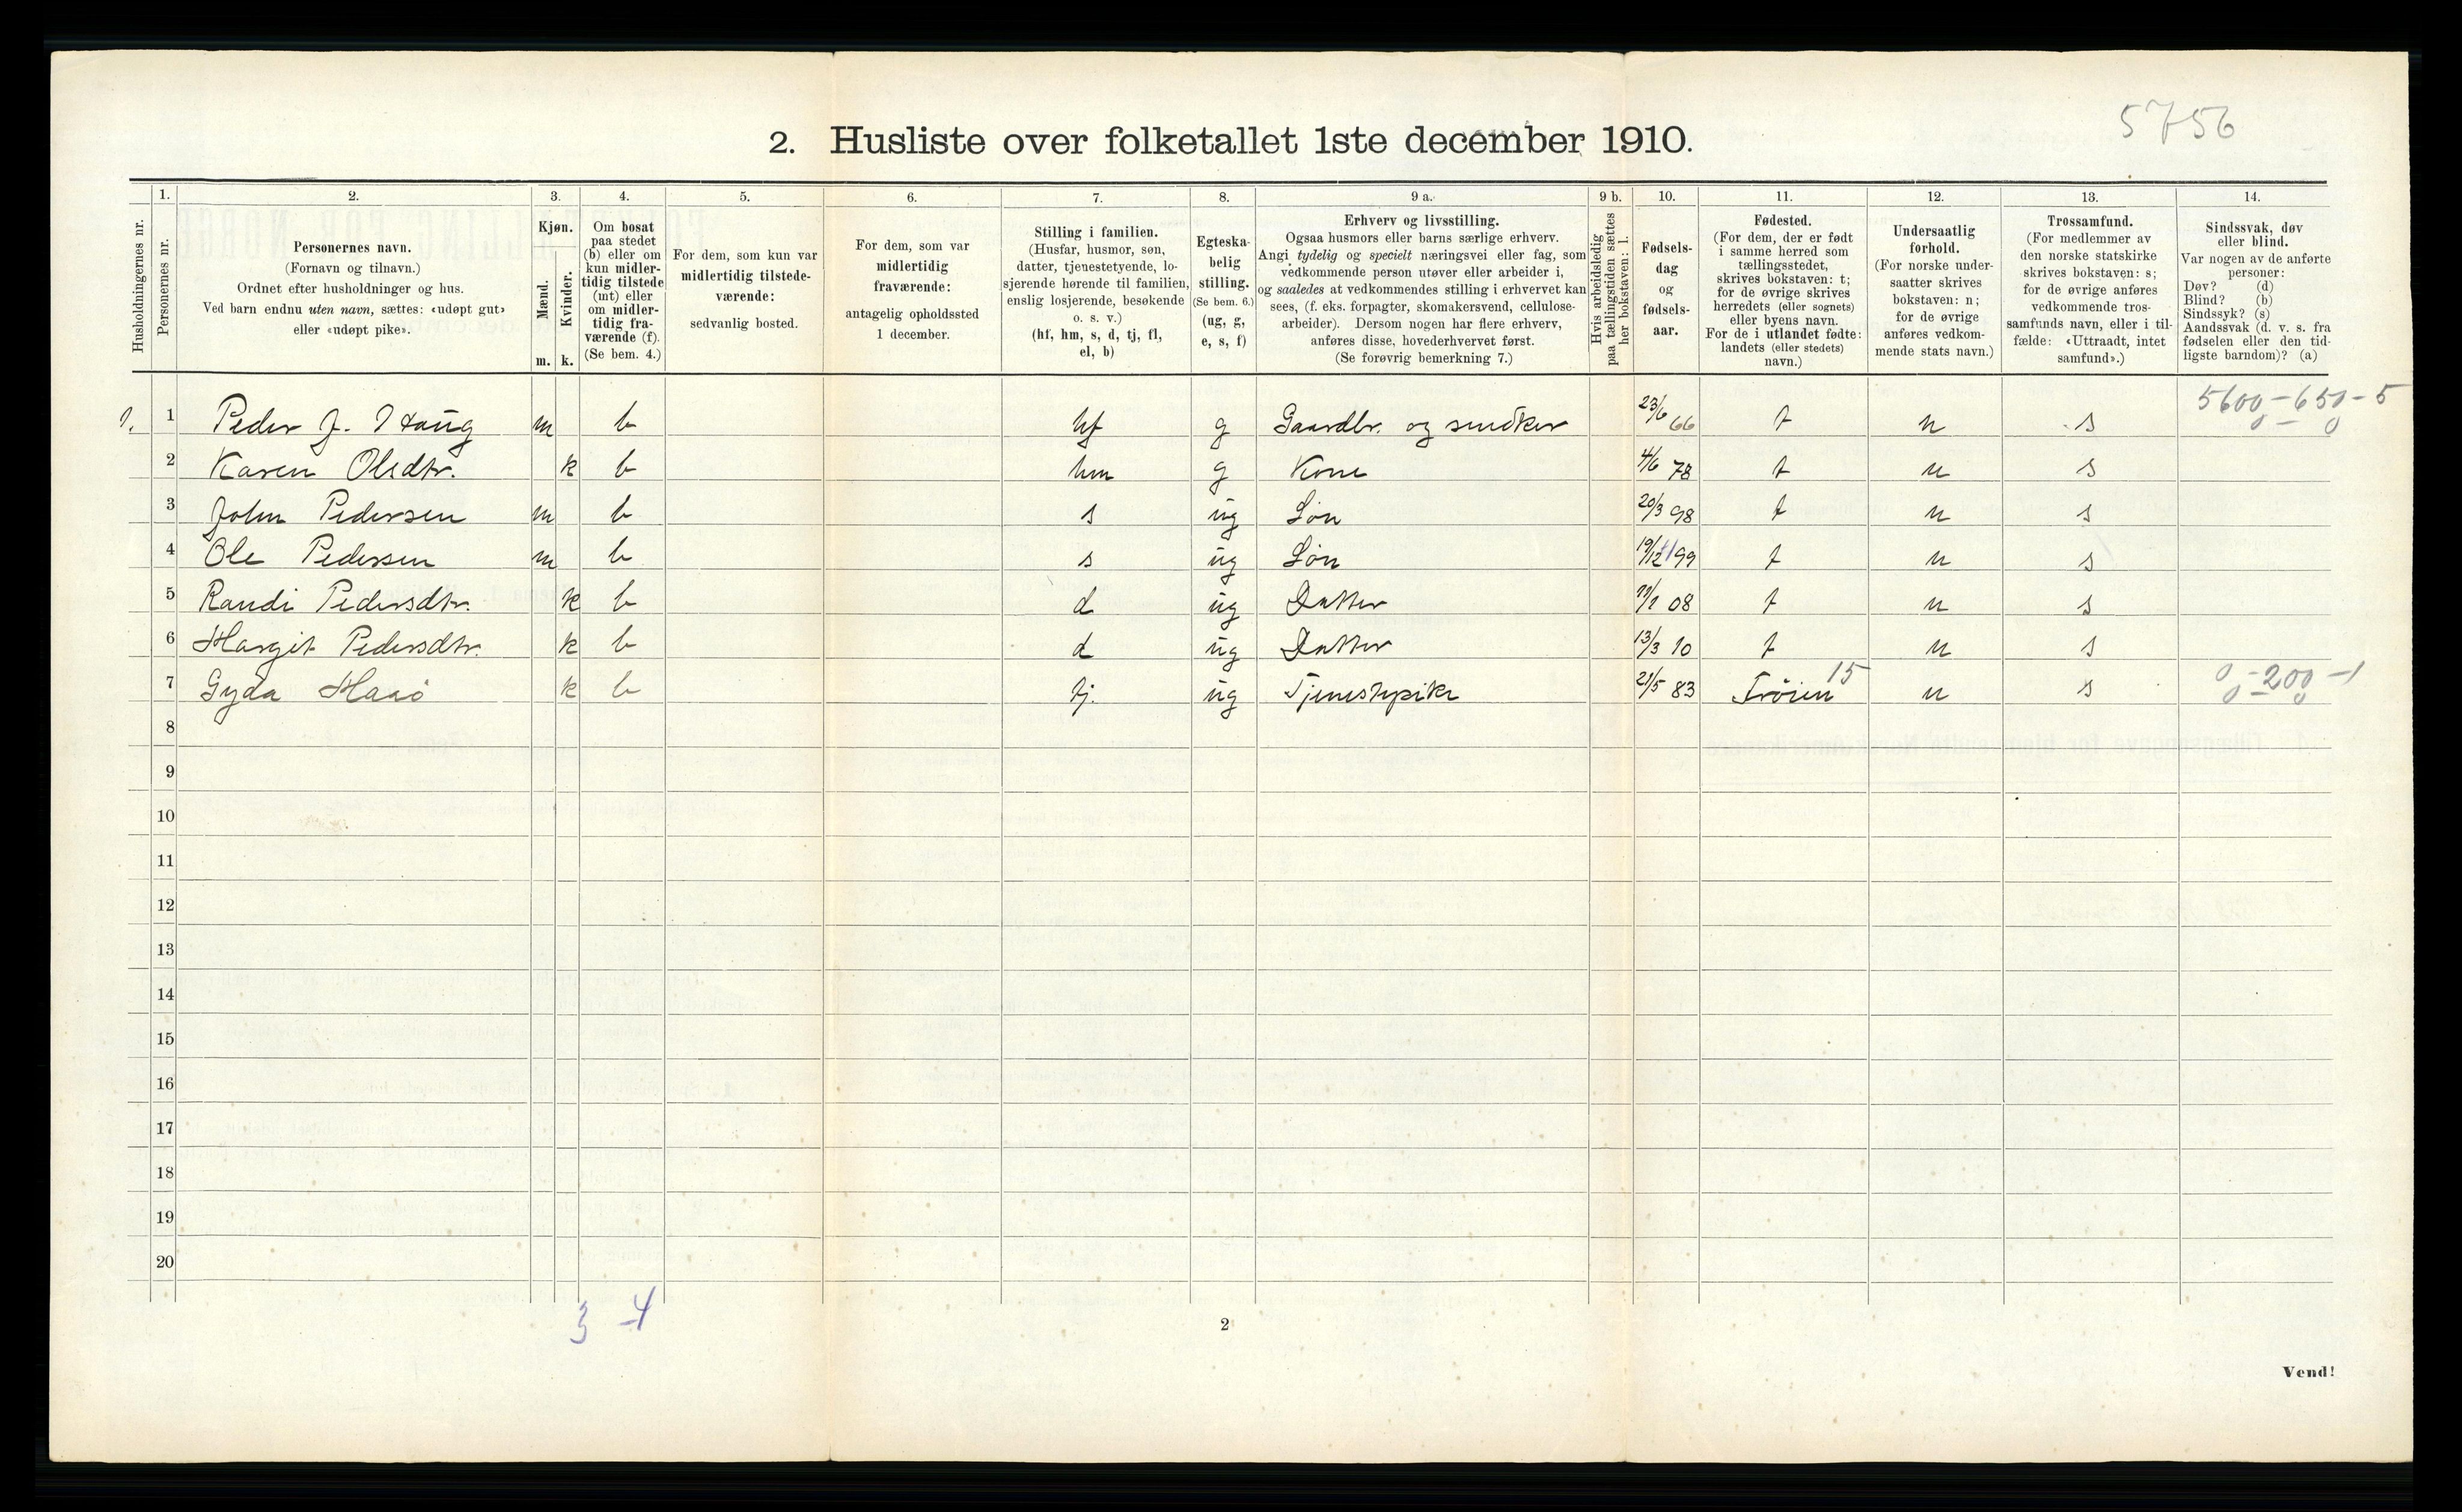 5756
2. Husliste over folketallet 1ste december 1910.
Husholdningernes nr.
1. Personernes nr.
2. Personernes navn. (Fornavn og tilnavn.) Ordnet efter husholdninger og hus. Ved barn endnu uten navn, sættes: «udøpt gut» eller «udøpt pike».
3. Kjøn. Mænd. m. Kvinder. k.
4. Om bosat paa stedet (b) eller om kun midlertidig tilstede (mt) eller om midlertidig fraværende (f). (Se bem. 4.)
5. For dem, som kun var midlertidig tilstedeværende: sedvanlig bosted.
6. For dem, som var midlertidig fraværende: antagelig opholdssted 1 december.
7. Stilling i familien. (Husfar, husmor, søn, datter, tjenestetyende, losjerende hørende til familien, enslig losjerende, besøkende o. s. v.) (hf, hm, s, d, tj, fl, el, b)
8. Egteskabelig stilling. (Se bem. 6.) (ug, g, e, s, f)
9 a. Erhverv og livsstilling. Ogsaa husmors eller barns særlige erhverv. Angi tydelig og specielt næringsvei eller fag, som vedkommende person utøver eller arbeider i, og saaledes at vedkommendes stilling i erhvervet kan sees, (f. eks. forpagter, skomakersvend, cellulosearbeider). Dersom nogen har flere erhverv, anføres disse, hovederhvervet først. (Se forøvrig bemerkning 7.)
9 b. Hvis arbeidsledig paa tællingstiden sættes her bokstaven: l.
10. Fødselsdag og fødselsaar.
11. Fødested. (For dem, der er født i samme herred som tællingsstedet, skrives bokstaven: t; for de øvrige skrives herredets (eller sognets) eller byens navn. For de i utlandet fødte: landets (eller stedets) navn.)
12. Undersaatlig forhold. (For norske undersaatter skrives bokstaven: n; for de øvrige anføres vedkommende stats navn.)
13. Trossamfund. (For medlemmer av den norske statskirke skrives bokstaven: s; for de øvrige anføres vedkommende trossamfunds navn, eller i tilfælde: «Uttraadt, intet samfund».)
14. Sindssvak, døv eller blind. Var nogen av de anførte personer: Døv? (d) Blind? (b) Sindssyk? (s) Aandssvak (d. v. s. fra fødselen eller den tidligste barndom)? (a)
1. 1 Peder J. Haug m b hf g Gaardbr. og snedker 23/6 66 t n s 5600-650-5
2 Karen Olsdtr. k b hm g Kone 4/6 78 t n s
3 John Pedersen m b s ug Søn 20/3 98 t n s
4 Ole Pedersen m b s ug Søn 19/12 99 t n s
5 Randi Pedersdtr. k b d ug Datter 11/1 08 t n s
6 Margit Pedersdtr. k b d ug Datter 13/3 10 t n s
7 Gyda k b tj. ug Tjenestepike 21/5 83 Frøien 15 n s 0-200-1
8
9
10
11
12
13
14
15
16
17
18
19
20
3 4
2
Vend!